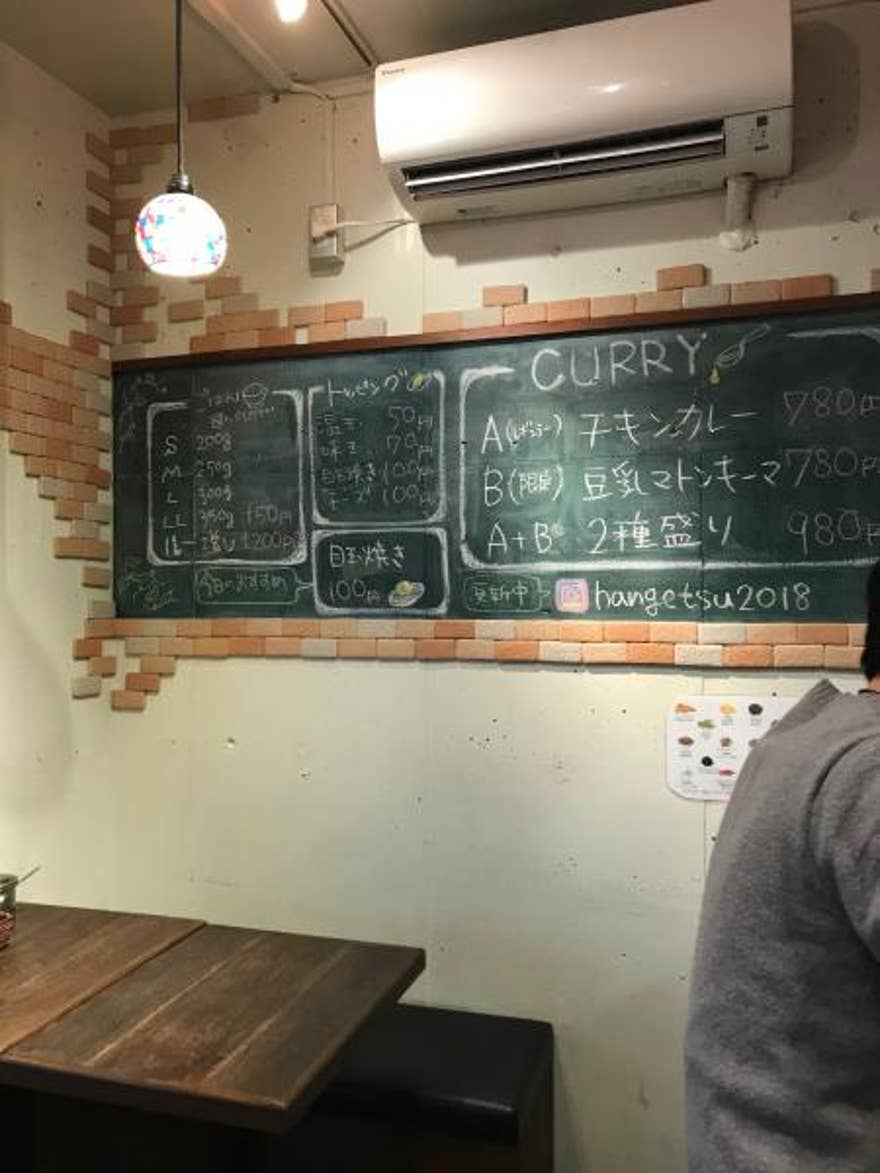 ごはん
S 200g
M 250g
L 300g
LL 350g +50円
+200円
トッピング
温玉 50円
味玉 70円
目玉焼き 100円
チーズ 100円
今日のおすすめ
目玉焼き
100円
CURRY
A(レギュラー) チキンカレー 780円
B(限定) 豆乳マトンキーマ 780円
A+B 2種盛り 980円
更新中
hangetsu2018